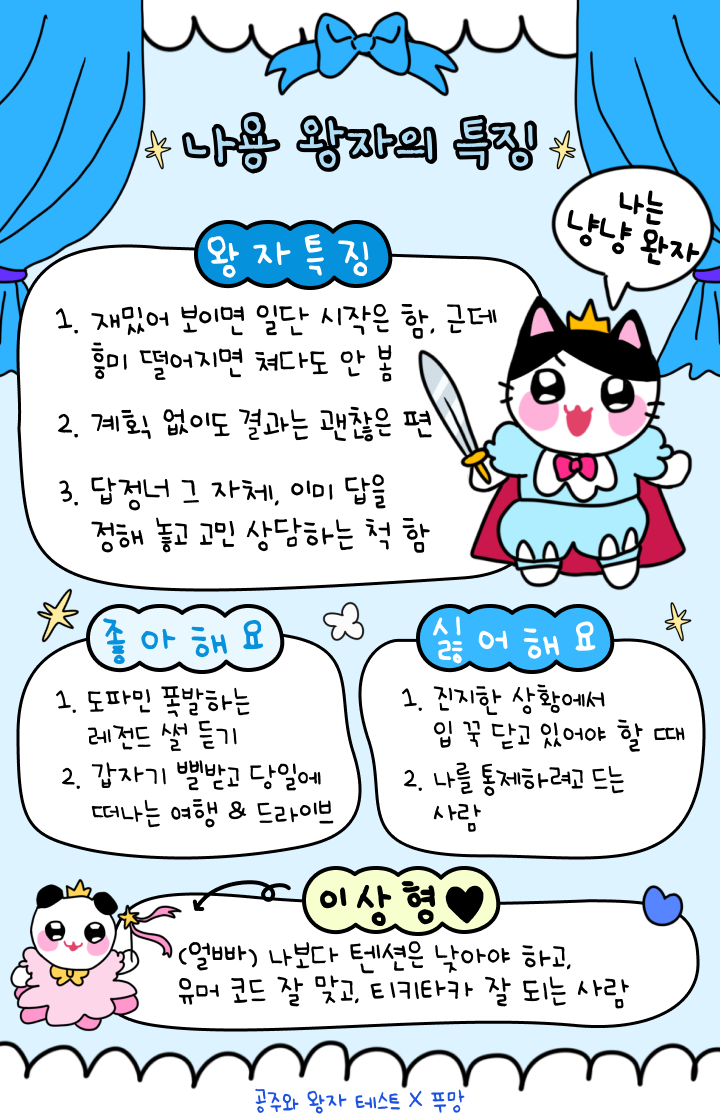 나용 왕자의 특징
나는
냥냥 완자
왕자특징
1. 재밌어 보이면 일단 시작은 함, 근데
흥미 떨어지면 쳐다도 안 봄
2. 계획 없이도 결과는 괜찮은 편
3. 답정너 그 자체, 이미 답을
정해 놓고 고민 상담하는 척 함
좋아해요
1. 도파민 폭발하는
레전드 썰 듣기
2. 갑자기 삘받고 당일에
떠나는 여행 & 드라이브
싫어해요
1. 진지한 상황에서
입 꾹 닫고 있어야 할 때
2. 나를 통제하려고 드는
사람
이상형♥
(얼빠) 나보다 텐션은 낮아야 하고,
유머 코드 잘 맞고, 티키타카 잘 되는 사람
공주와 왕자 테스트 X 푸망